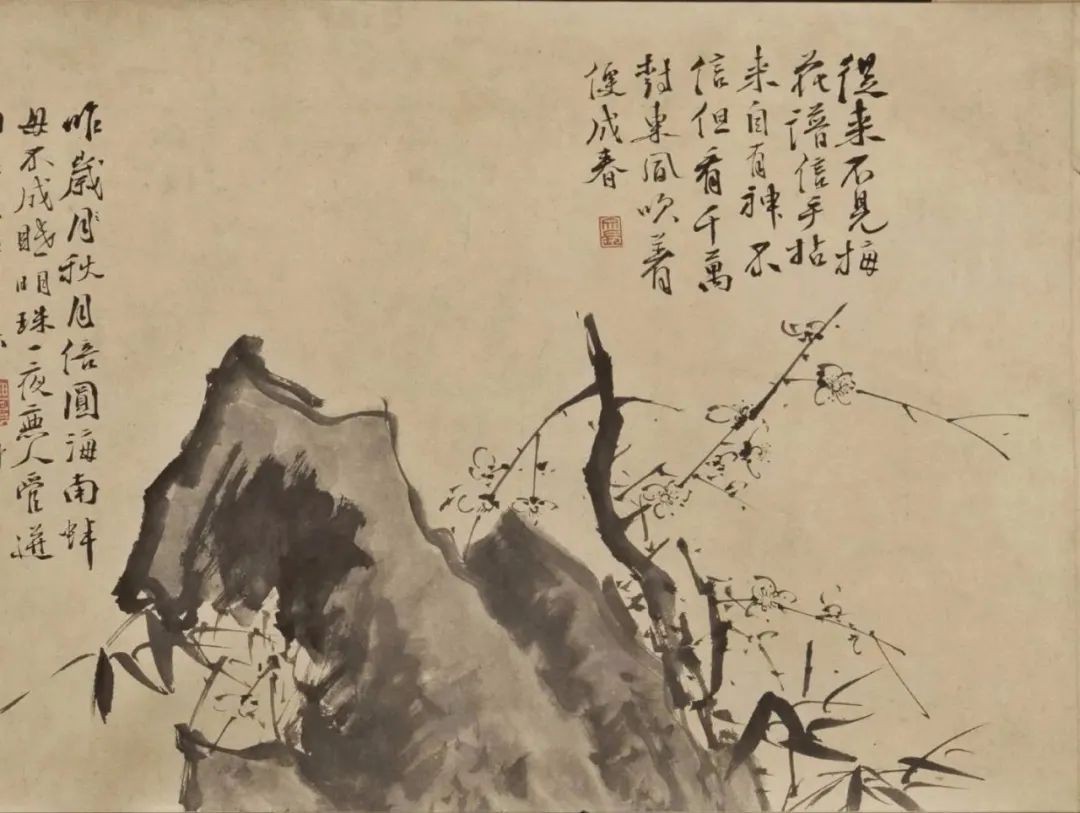 從來不見梅
花譜信手拈
來自有神不
信但看千萬
對東風吹著
便成春
昨歲中秋月倍圓海南蚌
母不成眠明珠一夜無人管迸